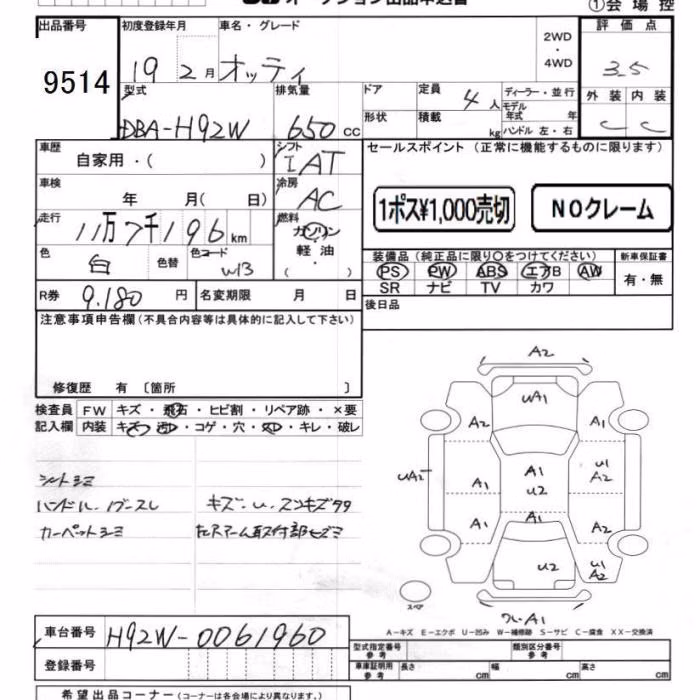 ①会場控
出品番号 9514
初度登録年月 19 2月
車名・グレード オッティ
2WD・4WD
評価点 3.5
型式 DBA-H92W
排気量 650 cc
ドア
形状
定員 4人
積載 kg
ディーラー・並行
モデル年式 年
ハンドル 左・右
外装 C
内装 C
車歴 自家用・( )
シフト I AT
車検 年 月( 日)
冷房 AC
走行 11万7千196 km
燃料 ガソリン 軽油 ( ・ )
色 白
色替
色コード W13
R券 9,180 円
名変期限 月 日
セールスポイント (正常に機能するものに限ります)
1ポス¥1,000売切
NOクレーム
装備品 (純正品に限り〇をつけてください)
PS PW ABS エアB AW
SR ナビ TV カワ
新車保証書
有・無
後日品
注意事項申告欄 (不具合内容等は具体的に記入して下さい)
修復歴 有 〔箇所 〕
検査員記入欄
FW キズ・飛石・ヒビ割・リペア跡・×要
内装 キズ・汚レ・コゲ・穴・欠ク・キレ・破レ
シートシミ
ハンドル・
キズ・U・
カーペットシミ
A2
UA1
A2
A1
UA2T
A1
A1
U2
U1
A2
A1
A1
A2
U2
U1
A2
スペア
A1
A-キズ E-エクボ U-凹み W-補修跡 S-サビ C-腐食 XX-交換済
車台番号 H92W-0061960
登録番号
型式指定番号 参考
類別区分番号 参考
車庫証明用 参考
長さ cm
幅 cm
高さ cm
希望出品コーナー (コーナーは各会場により異なります。)